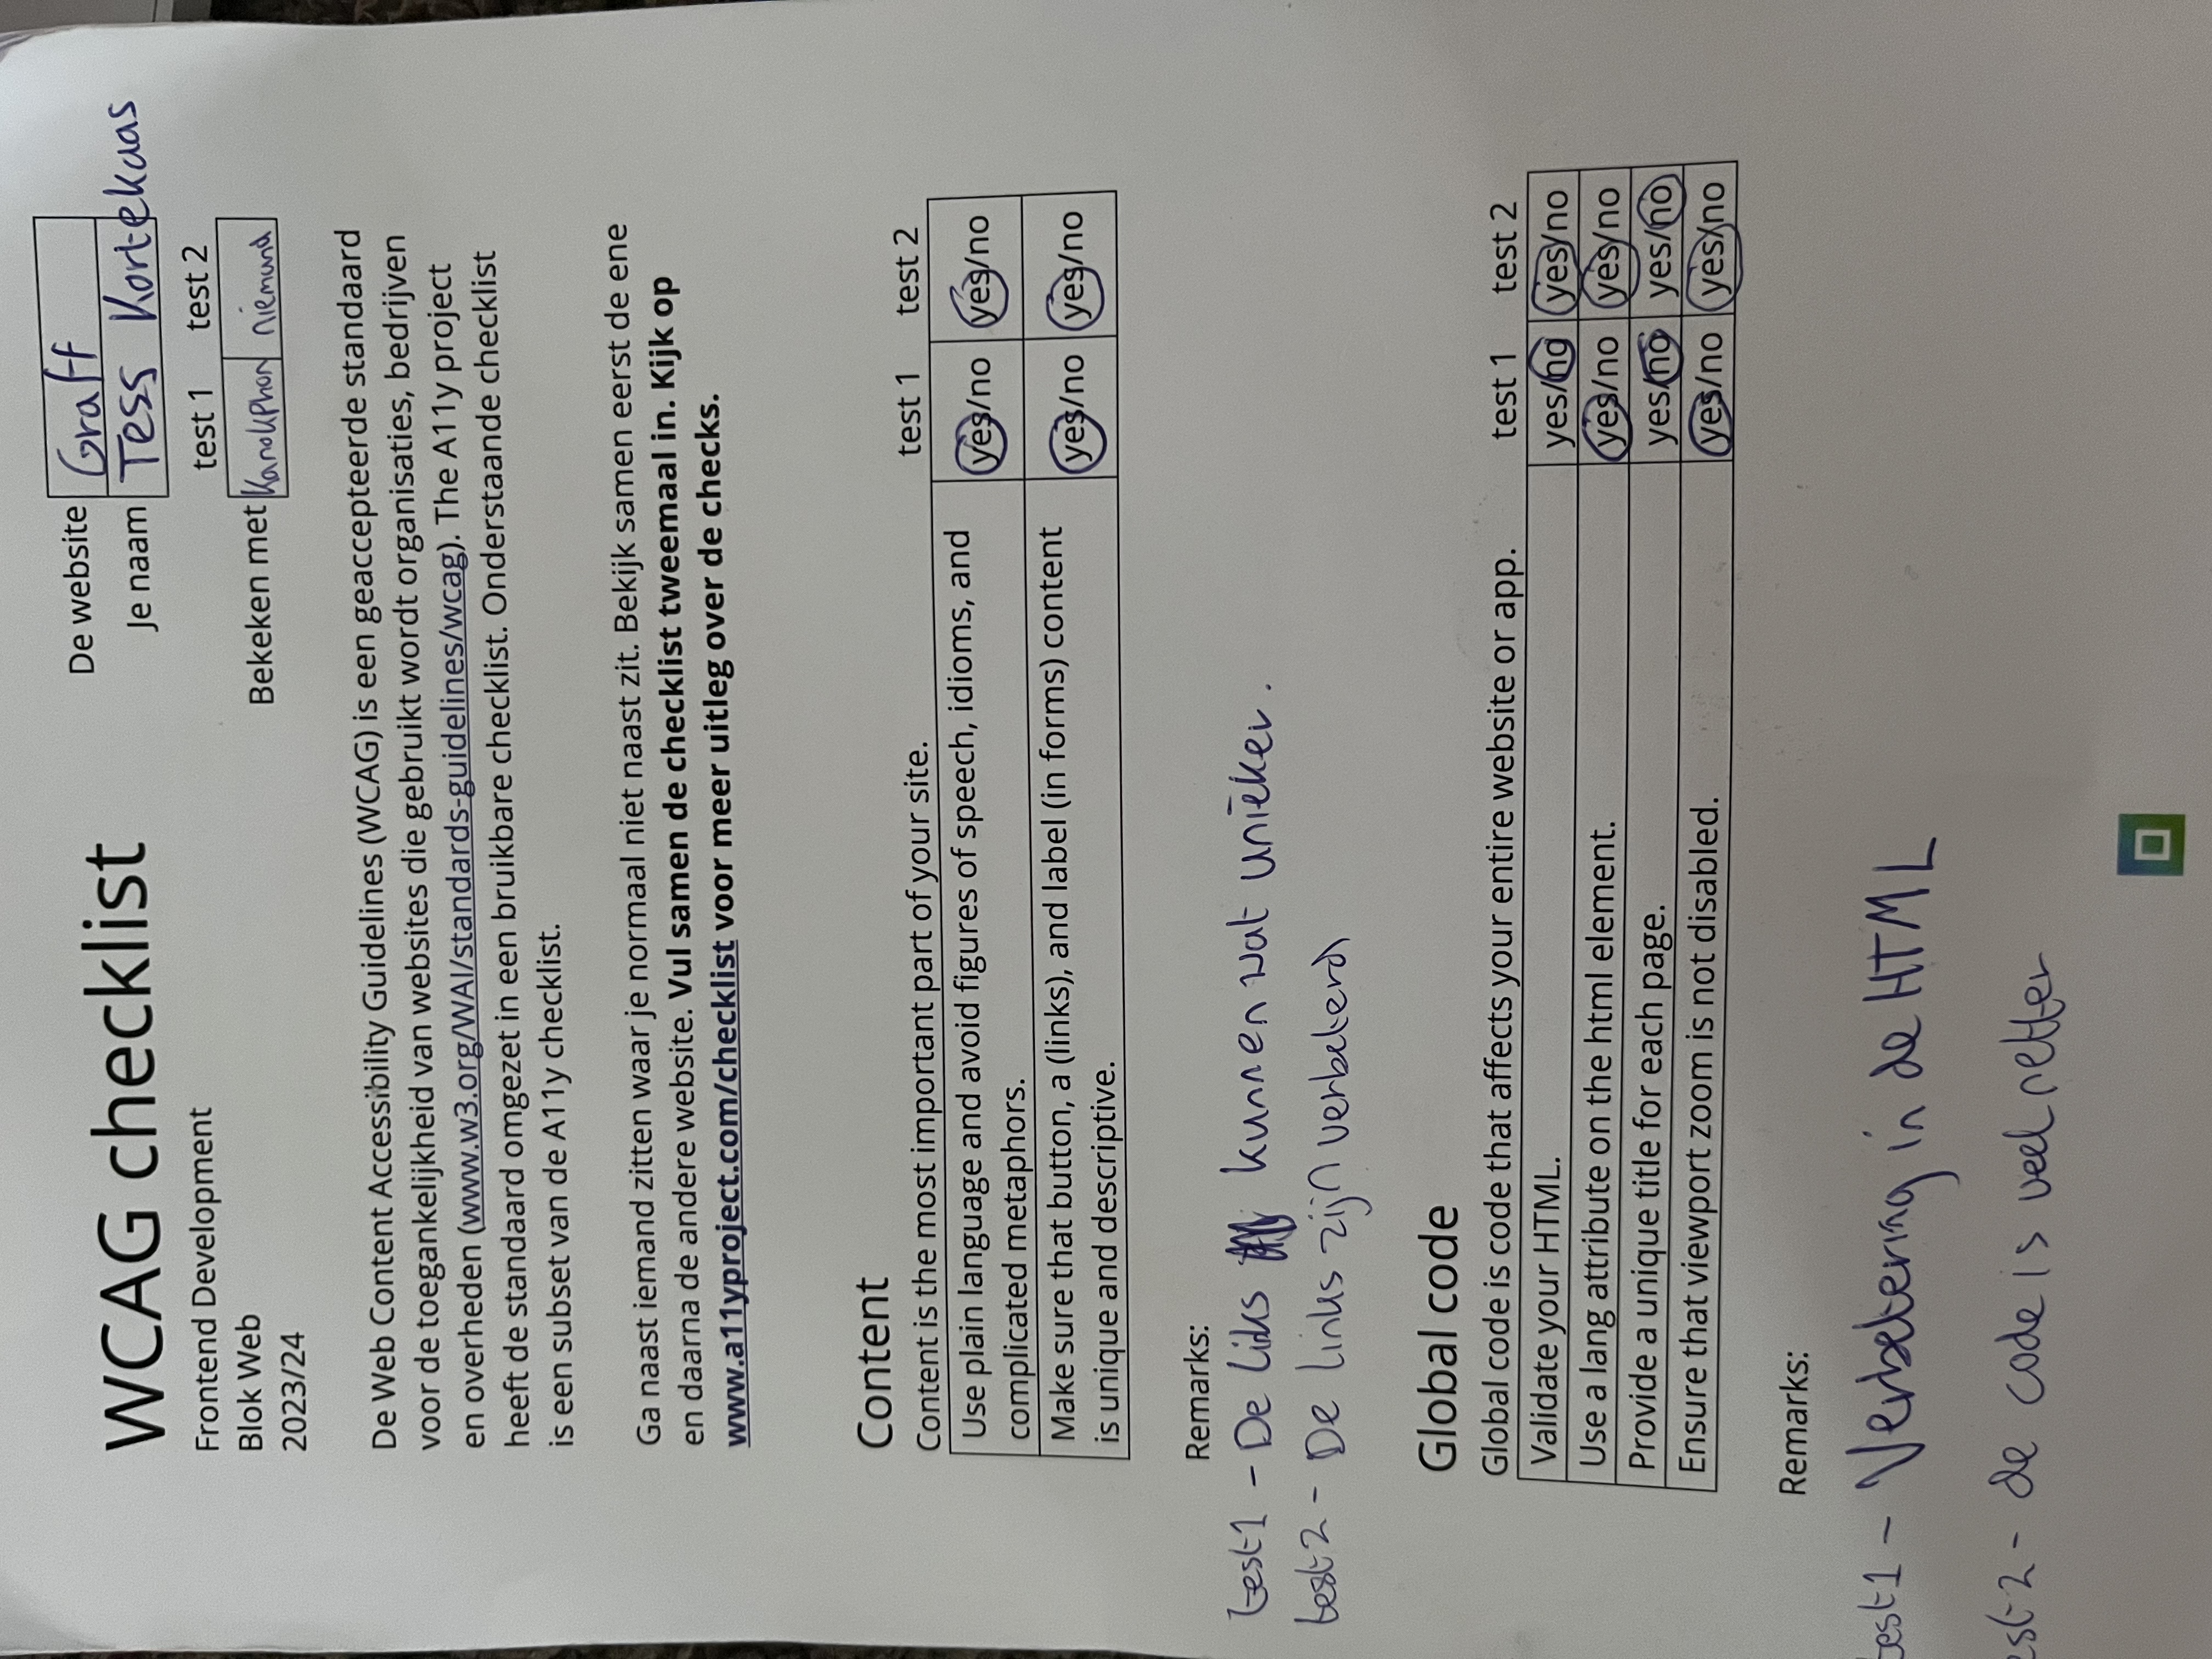 De website Graff
WCAG checklist
Je naam Tess Kortekaas
test 1 test 2
Frontend Development
Blok Web
Bekeken met Kanokphon niemand
2023/24
De Web Content Accessibility Guidelines (WCAG) is een geaccepteerde standaard
voor de toegankelijkheid van websites die gebruikt wordt organisaties, bedrijven
en overheden (www.w3.org/WAI/standards-guidelines/wcag). The A11y project
heeft de standaard omgezet in een bruikbare checklist. Onderstaande checklist
is een subset van de A11y checklist.
Ga naast iemand zitten waar je normaal niet naast zit. Bekijk samen eerst de ene
en daarna de andere website. Vul samen de checklist tweemaal in. Kijk op
www.a11yproject.com/checklist voor meer uitleg over de checks.
Content
Content is the most important part of your site. test 1 test 2
Use plain language and avoid figures of speech, idioms, and
complicated metaphors. yes/no yes/no
Make sure that button, a (links), and label (in forms) content
is unique and descriptive. yes/no yes/no
Remarks:
test1 - De liks kunnen wat unieker.
test2 - De links zijn verbeterd
Global code
Global code is code that affects your entire website or app. test 1 test 2
Validate your HTML. yes/no yes/no
Use a lang attribute on the html element. yes/no yes/no
Provide a unique title for each page. yes/no yes/no
Ensure that viewport zoom is not disabled. yes/no yes/no
Remarks:
test1 - Verbetering in de HTML
est2 - de code is veel netter